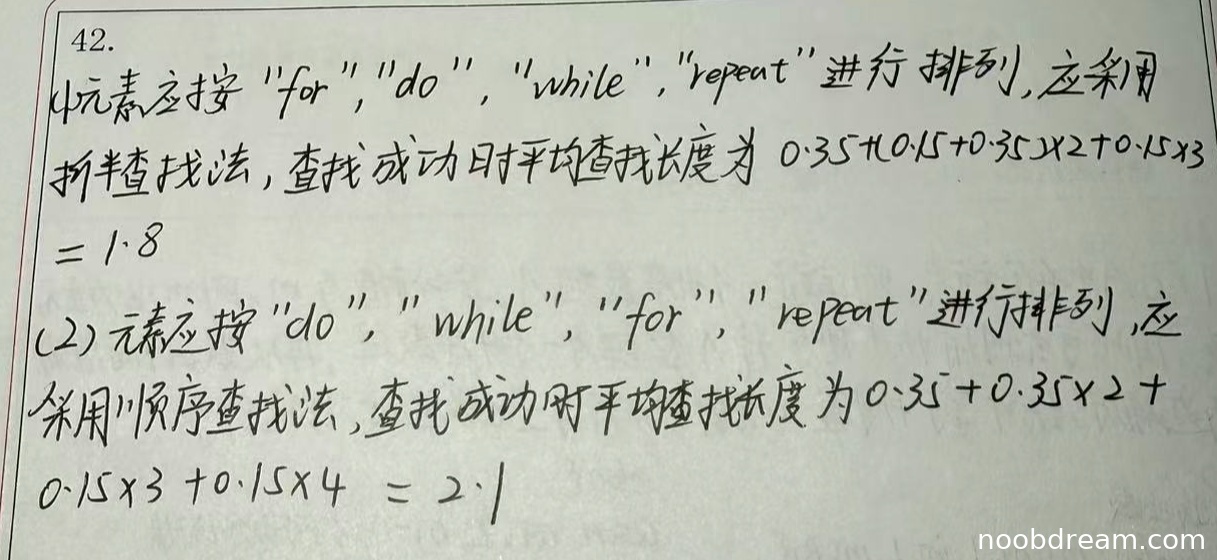 42.
(1)元素应按"for","do","while","repeat"进行排列,应采用
折半查找法,查找成功时平均查找长度为 0.35+(0.15+0.35)×2+0.15×3
=1.8
(2)元素应按"do","while","for","repeat"进行排列,应
采用顺序查找法,查找成功时平均查找长度为0.35+0.35×2+
0.15×3+0.15×4 =2.1
noobdream.com